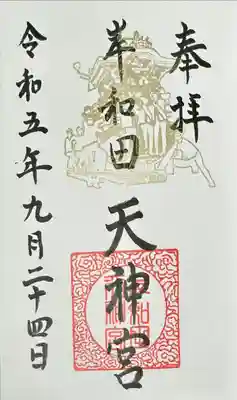 奉拝
岸和田
天神宮
令和五年九月二十四日